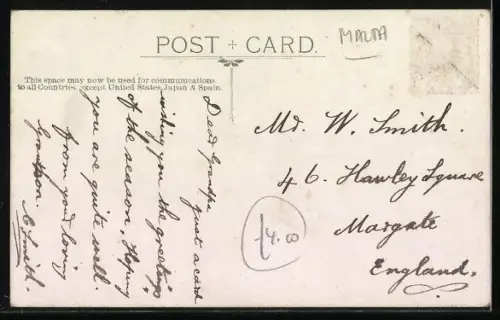 POST CARD.
MALTA
This space may now be used for communications
to all Countries, except United States, Japan & Spain.
Dear Grandpa just a card
wishing you the greetings
of the season, Hoping
you are quite well.
from your loving
Grandson. C. Smith.
Mr. W. Smith.
46. Hawley Square
Margate
England.
£4.00